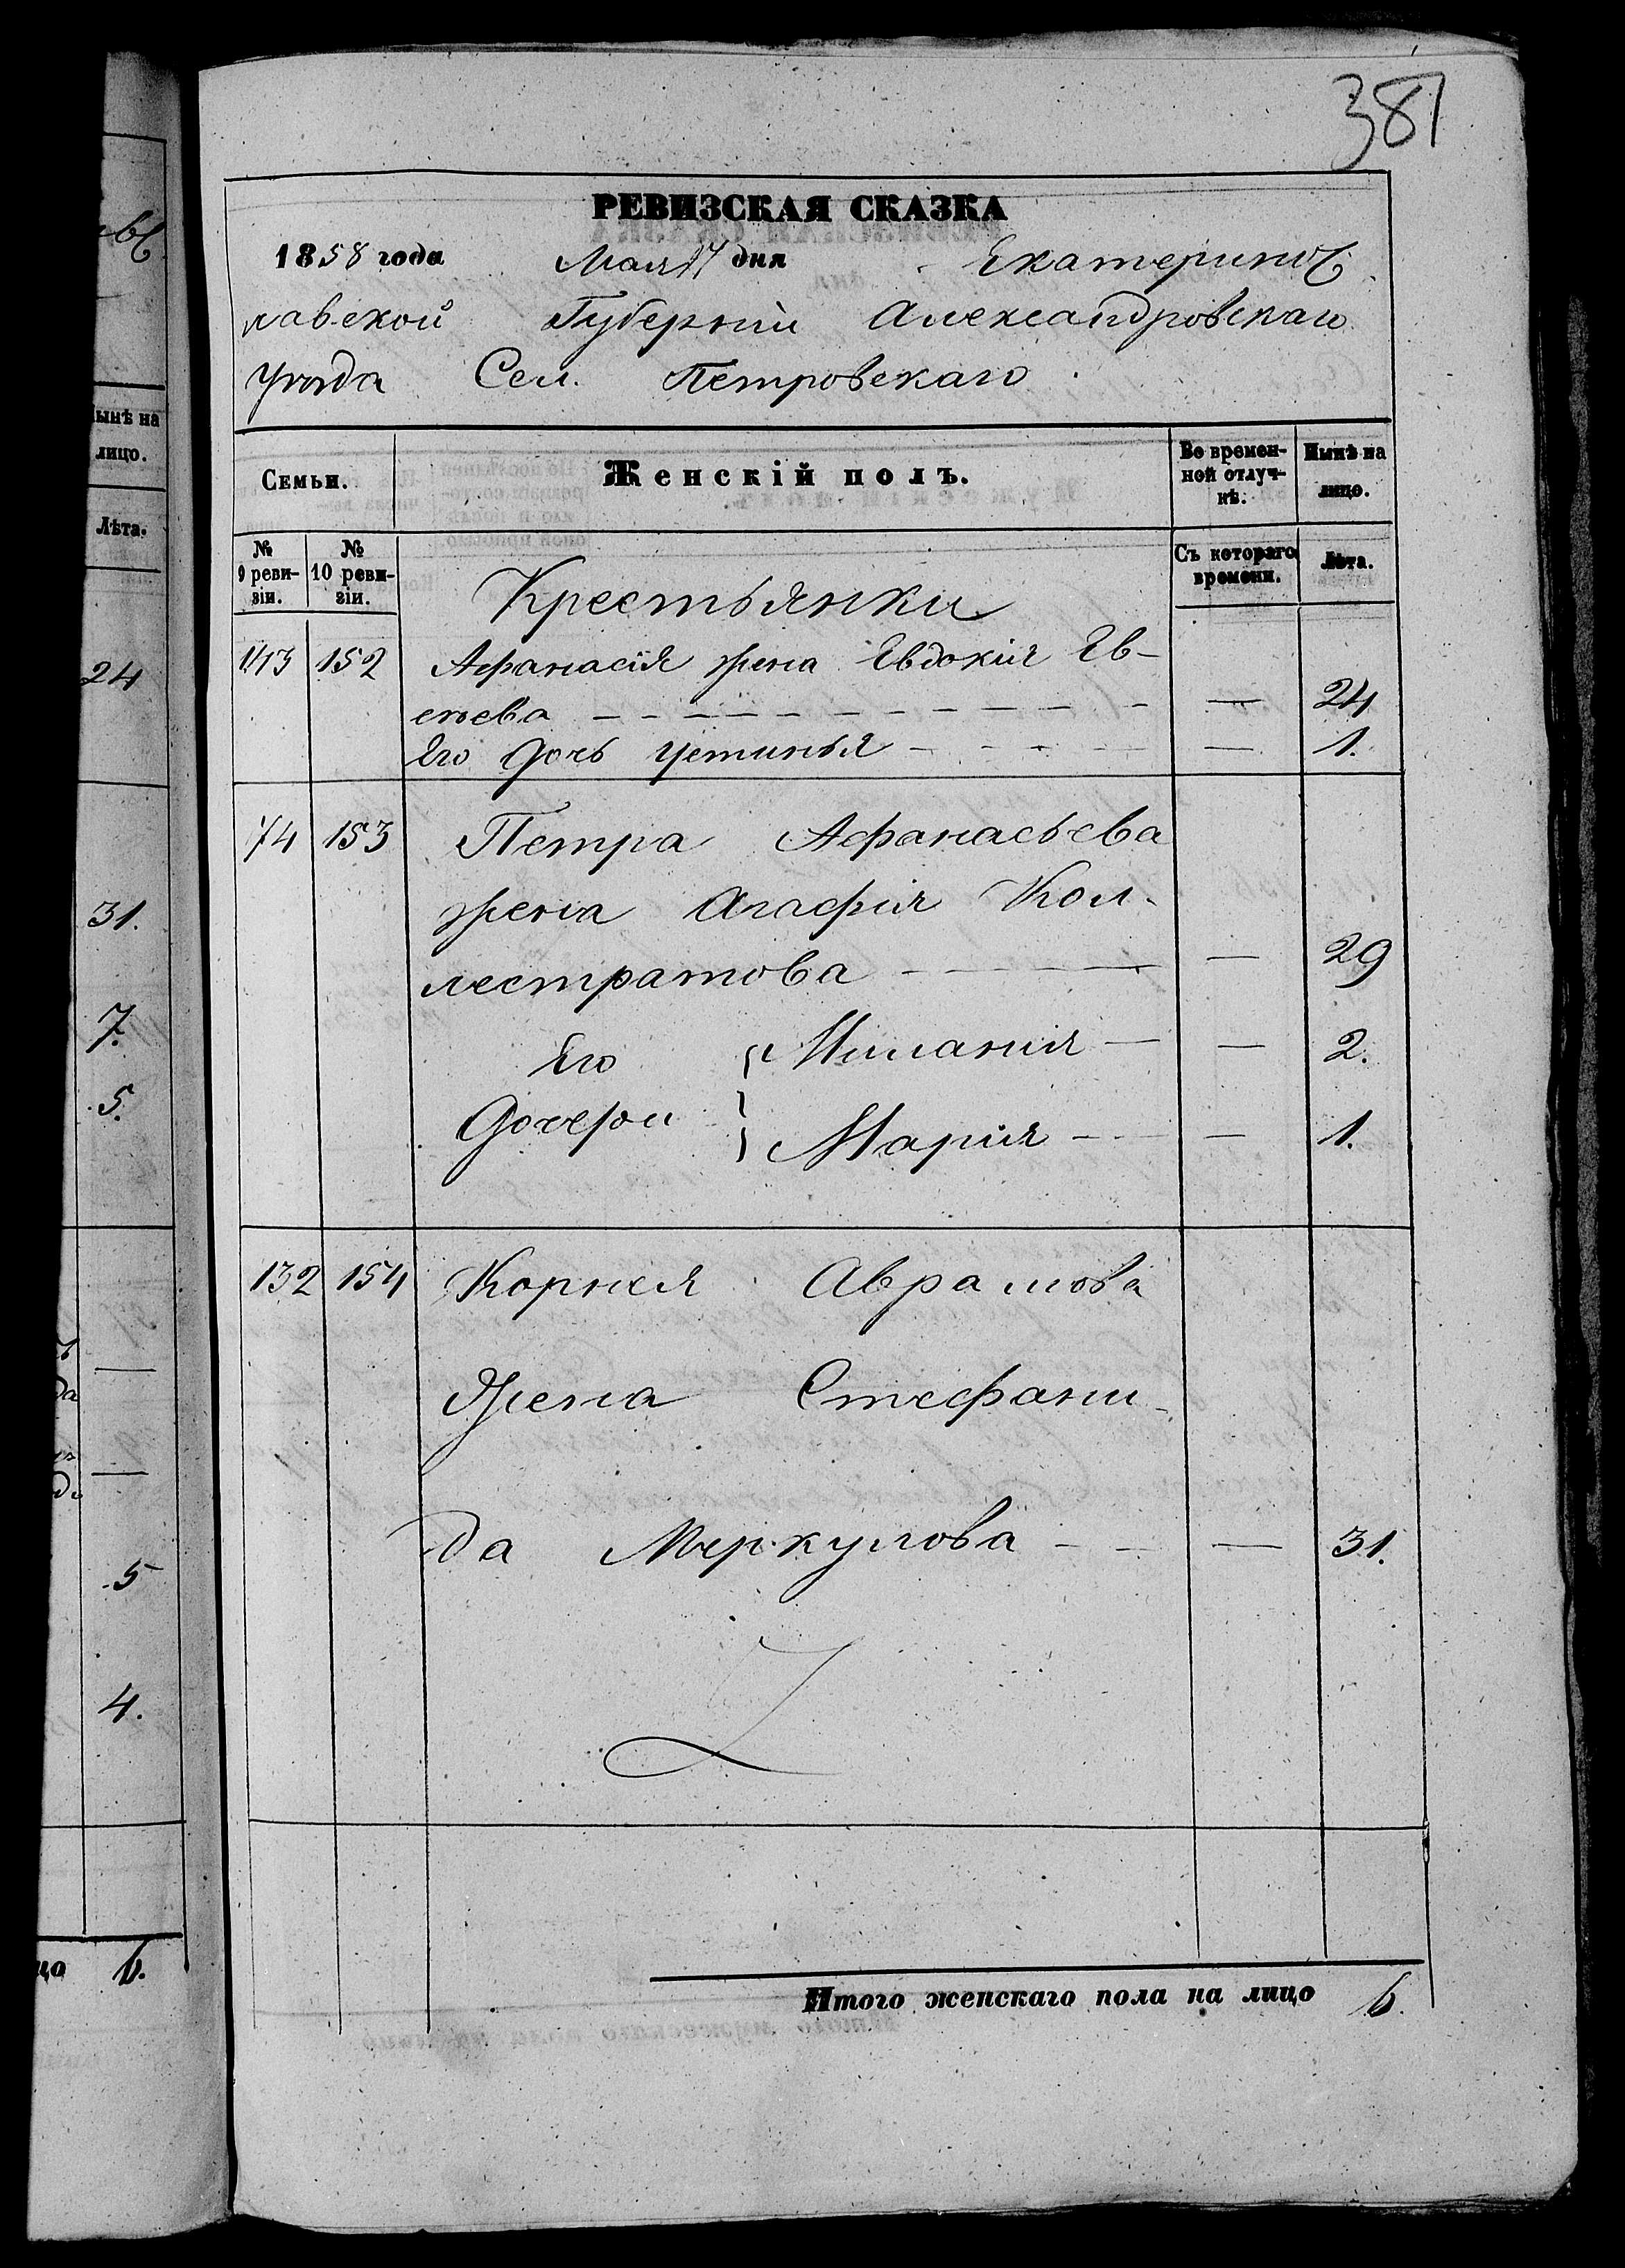 381
РЕВИЗСКАЯ СКАЗКА
1858 года Мая 17 дня Екатеринос
лавской Губерніи Александровскаго
Уѣзда Сел. Петровскаго
Семьи. Женскій полъ. Во времен-ной отлуч-кѣ. Нынѣ на лицо.
№ 9 реви-зіи. № 10 реви-зіи. Съ котораго времени. Лѣта.
Крестьянки
143 152 Афанасія жена Евдокия Ев-
сѣева — — 24
Его дочь Устинья — — 1.
74 153 Петра Афанасьева
жена Агафия Кол-
лестратова — — 29
Его Милания — — 2.
дочери Мария — — 1.
132 154 Корнея Аврамова
Жена Стефани-
да Меркулова — — 31.
Итого женскаго пола на лицо 6.
Нынѣ на
лицо.
Лѣта.
24
31.
7.
5.
5
4.
6.